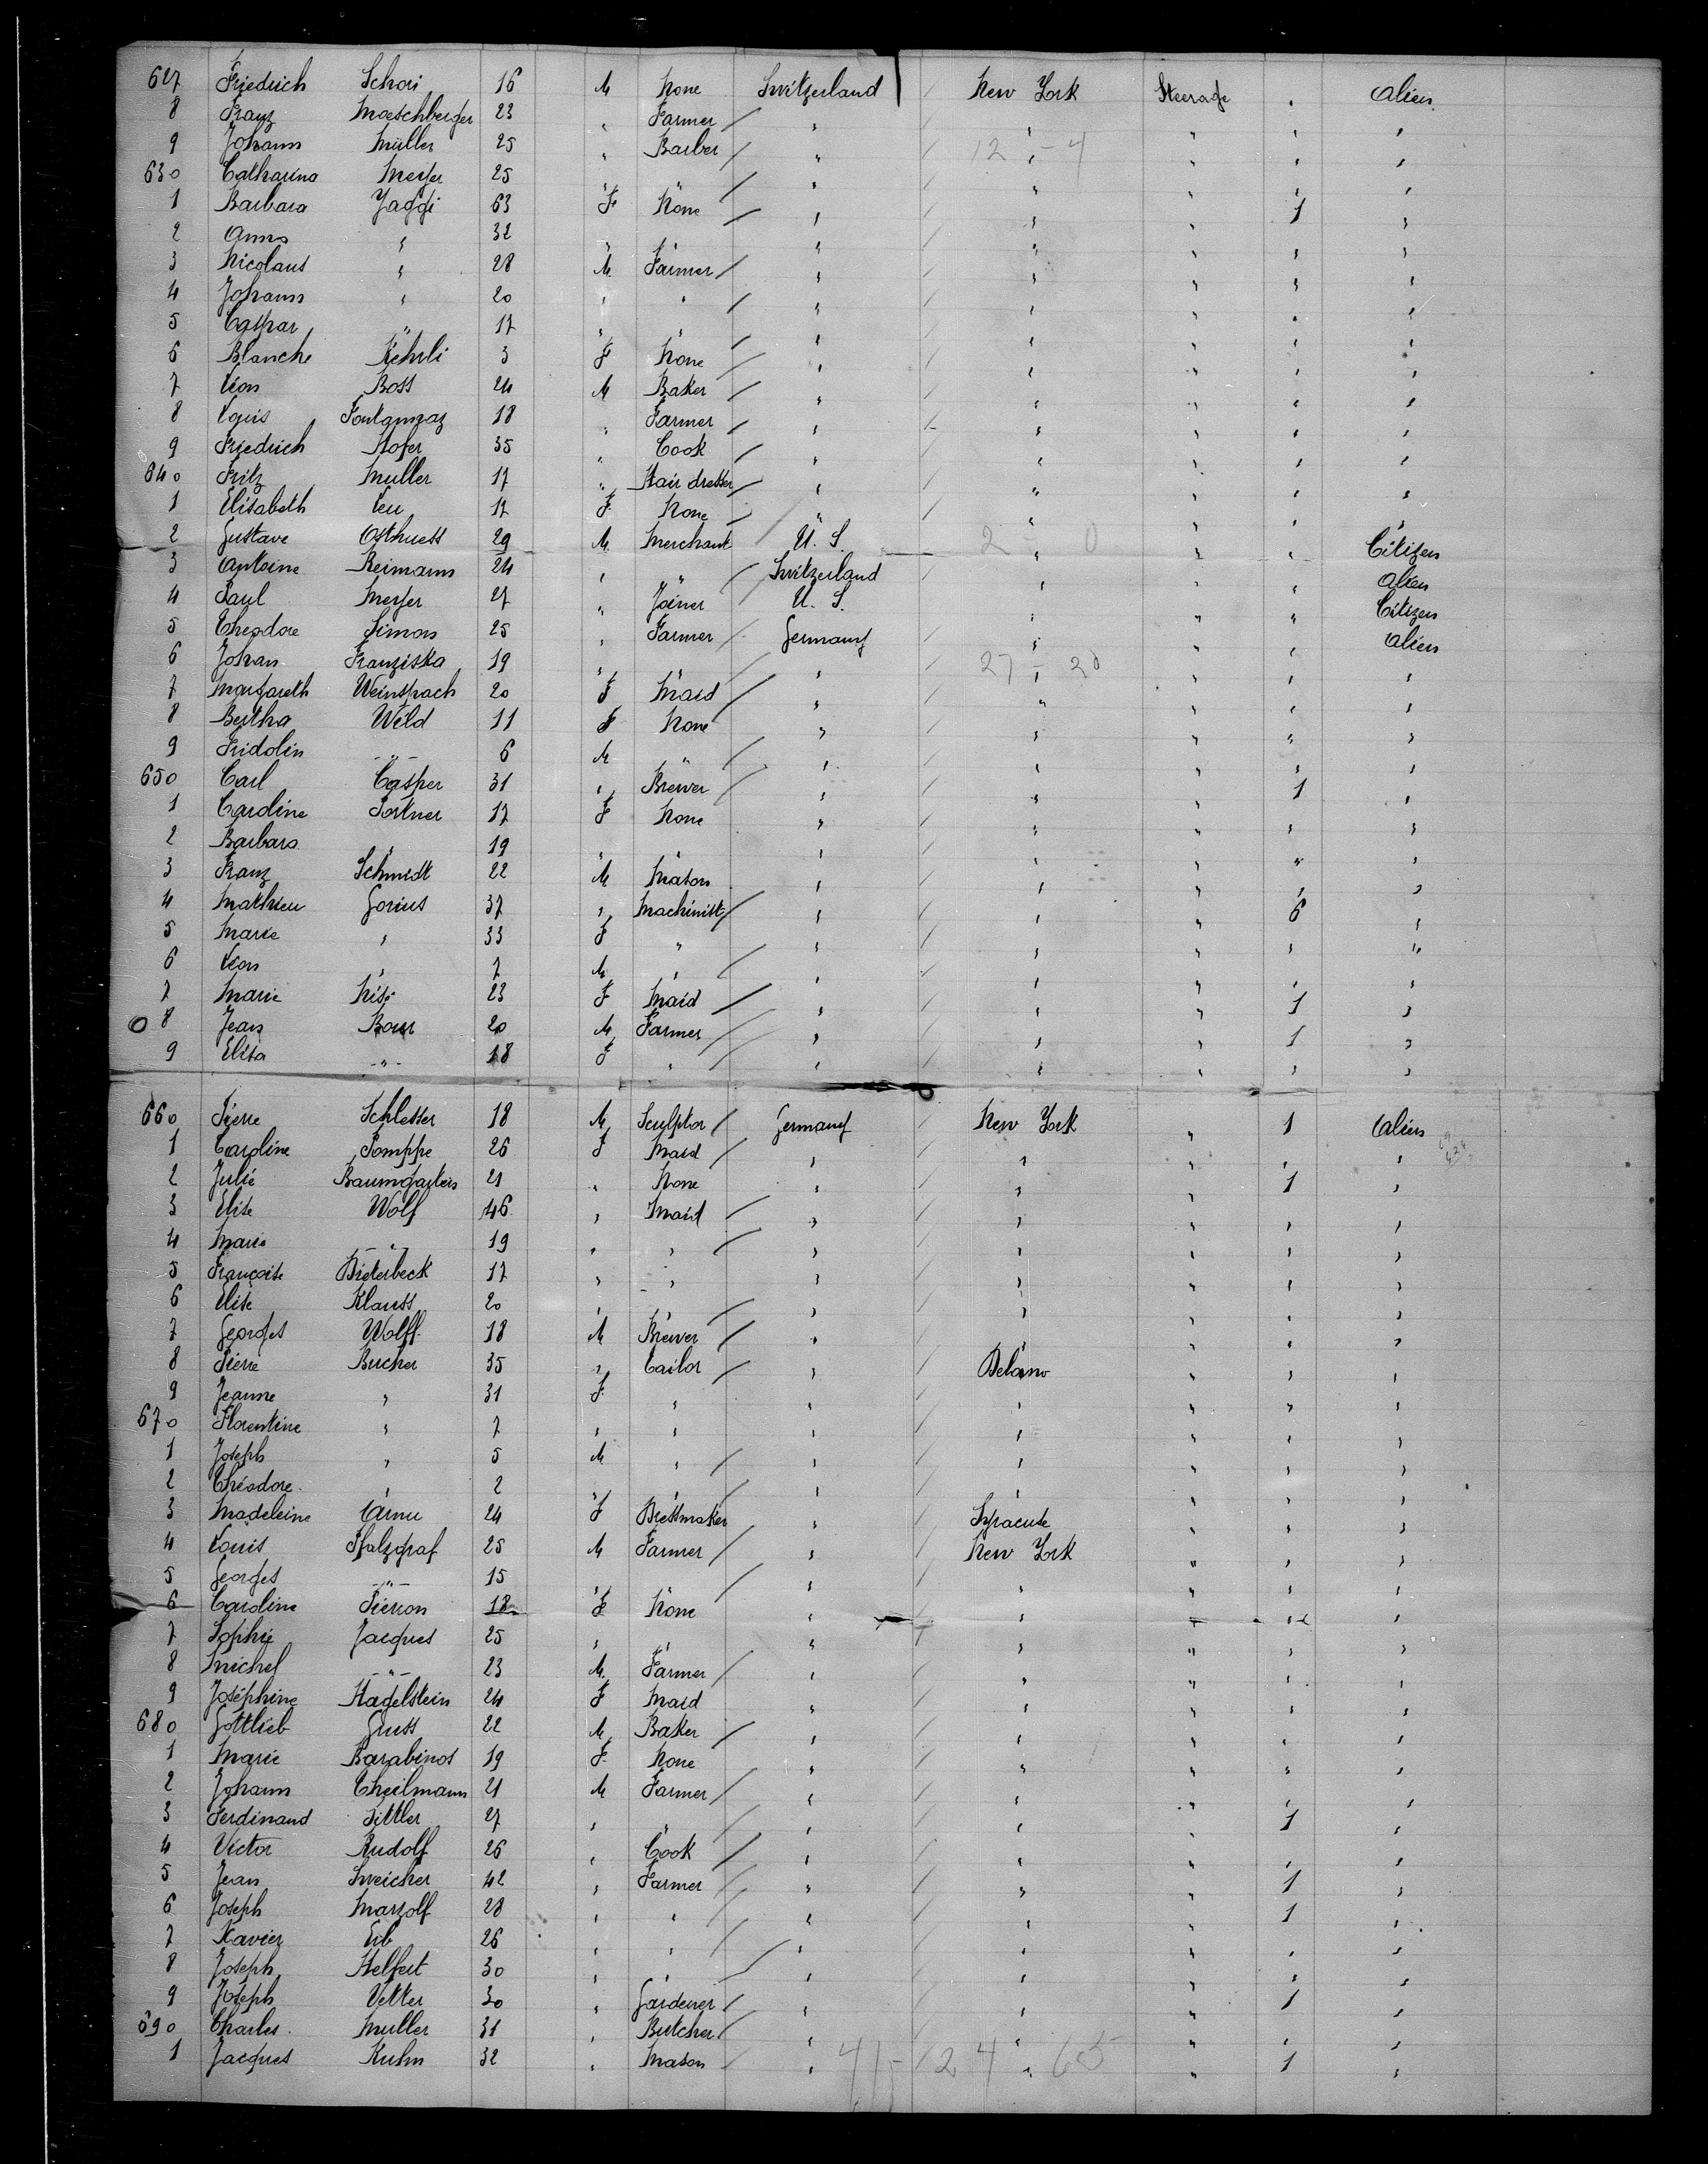 627 Friedrich Schori 16 M None Switzerland New York Steerage " Alien
8 Franz Moeschberger 23 " Farmer " " " " "
9 Johann Müller 25 " Barber " " " " "
12 - 4
630 Catharina Meyer 25 " " " " " " "
1 Barbara Jaggi 63 F None " " " 1 "
2 Anna " 32 " " " " " " "
3 Nicolaus " 28 M Farmer " " " " "
4 Johann " 20 " " " " " " "
5 Caspar " 17 " " " " " " "
6 Blanche Kehrli 3 F None " " " " "
7 Léon Boss 24 M Baker " " " " "
8 Louis Fontannaz 18 " Farmer " " " " "
9 Friedrich Hofer 35 " Cook " " " " "
640 Fritz Muller 17 " Hair dresser " " " " "
1 Elisabeth Leu 17 F None " " " " "
2 Gustave 29 M Merchant U. S. " " " Citizen
2 - 0
3 Antoine Reimann 24 " " Switzerland " " " Alien
4 Paul Meyer 27 " Joiner U. S. " " " Citizen
5 Theodore Simon 25 " Farmer Germany " " " Alien
6 Johan Franziska 19 " " " " " " "
27 - 20
7 Margareth Weinspach 20 F Maid " " " " "
8 Bertha Wild 11 F None " " " " "
9 Fridolin " 6 M " " " " " "
650 Carl Casper 31 " Brewer " " " 1 "
1 Caroline Portner 17 F None " " " " "
2 Barbara " 19 " " " " " " "
3 Franz Schmidt 22 M Mason " " " " "
4 Mathieu Gorius 37 " Machinist " " " 6 "
5 Marie " 33 F " " " " " "
6 Léon " 7 M " " " " " "
7 Marie 23 F Maid " " " 1 "
8 Jean Bour 20 M Farmer " " " 1 "
9 Elisa " 18 F " " " " " "
660 Pierre Schlesser 18 M Sculptor Germany New York " 1 Alien
1 Caroline Pomppe 26 F Maid " " " " "
2 Julie Baumgarten 21 " None " " " 1 "
3 Elise Wolf 46 " Maid " " " " "
4 Marie " 19 " " " " " " "
5 Françoise Bieterbeck 17 " " " " " " "
6 Elise Klauss 20 " " " " " " "
7 Georges Wolff 18 M Brewer " " " " "
8 Pierre Bucher 35 " Tailor " Delano " " "
9 Jeanne " 31 F " " " " " "
670 Florentine " 7 " " " " " " "
1 Joseph " 5 M " " " " " "
2 Théodore " 2 " " " " " " "
3 Madeleine 24 F Dressmaker " Syracuse " " "
4 Louis Pfalzgraf 25 M Farmer " New York " " "
5 Georges " 15 " " " " " " "
6 Caroline Pierron 18 F None " " " " "
7 Sophie Jacques 25 " " " " " " "
8 Michel " 23 M Farmer " " " " "
9 Joséphine Hagelstein 24 F Maid " " " " "
680 Gottlieb Gruss 22 M Baker " " " " "
1 Marie Barabinos 19 F None " " " " "
2 Johann Theilmann 21 M Farmer " " " " "
3 Ferdinand Pittler 27 " " " " " 1 "
4 Victor Rudolf 26 " Cook " " " " "
5 Jean Sweicher 42 " Farmer " " " 1 "
6 Joseph Marzolf 28 " " " " " 1 "
7 Xavier Erb 26 " " " " " " "
8 Joseph Helfert 30 " " " " " " "
9 Joseph Vetter 30 " Gardener " " " 1 "
690 Charles Muller 31 " Butcher " " " " "
1 Jacques Kuhn 32 " Mason " " " 1 "
415 24 65